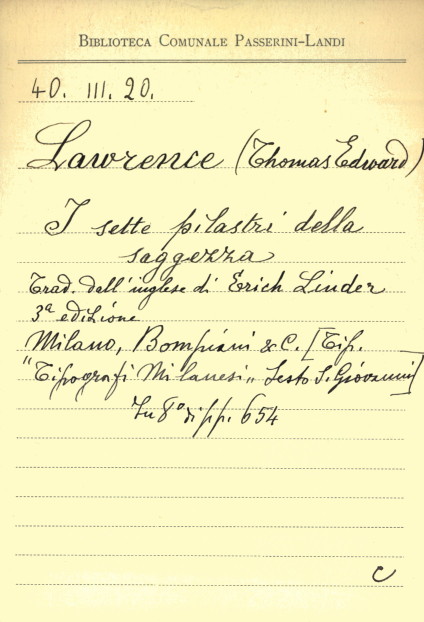 BIBLIOTECA COMUNALE PASSERINI-LANDI
40. III. 20.
Lawrence (Thomas Edward)
I sette pilastri della
saggezza
Trad. dell'inglese di Erich Linder
3ª edizione
Milano, Bompiani & C. [Tip.
"Tipografi Milanesi" Sesto S. Giovanni]
In 8° di pp. 654
C